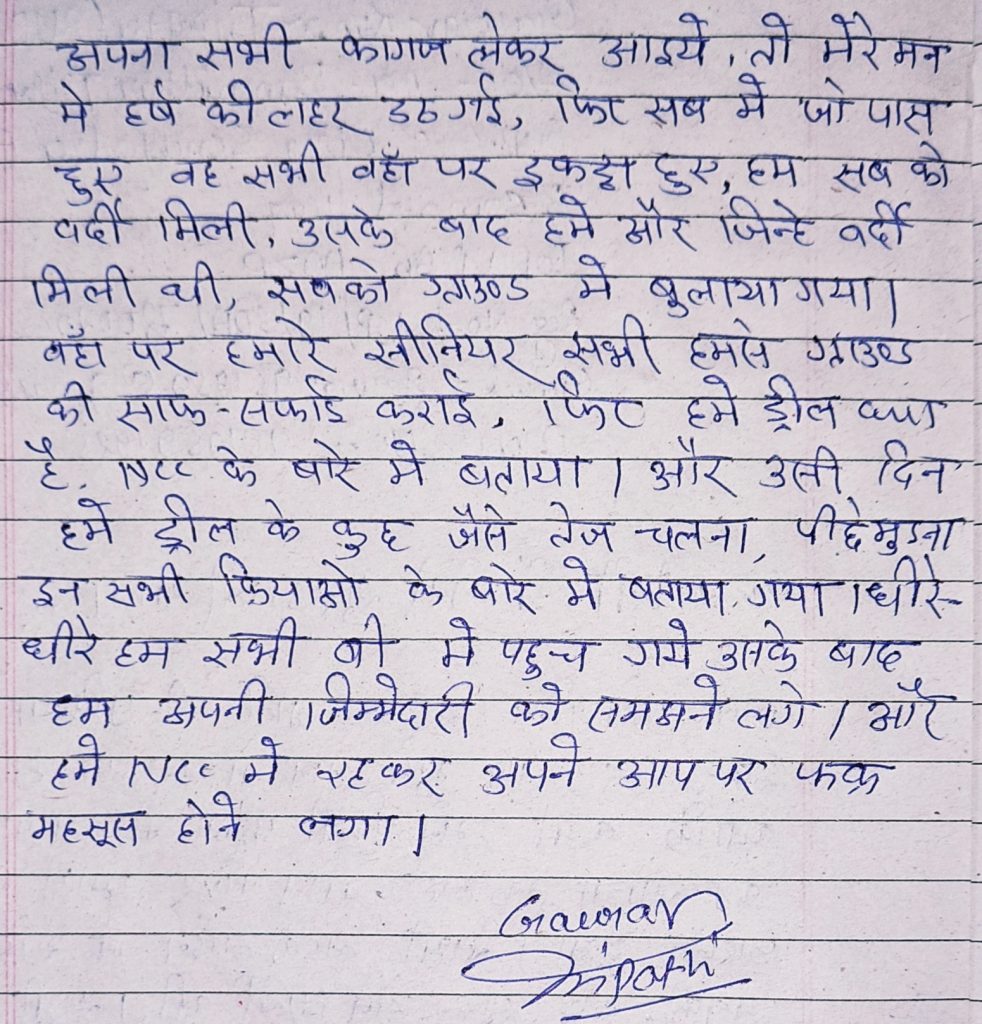 अपना सभी कागज लेकर आइये, तो मेरे मन
मे हर्ष की लहर उठ गई, फिर सब मे जो पास
हुए वह सभी वहाँ पर इकट्ठा हुए, हम सब को
वर्दी मिली, उसके बाद हमे और जिन्हे वर्दी
मिली थी, सबको ग्राउण्ड मे बुलाया गया।
वहाँ पर हमारे सीनियर सभी हमसे ग्राउण्ड
की साफ-सफाई कराई, फिर हमे ड्रील क्या
है, NCC के बारे मे बताया। और उसी दिन
हमे ड्रील के कुछ जैसे तेज चलना, पीछे मुडना
इन सभी क्रियाओ के बारे मे बताया गया। धीरे-
धीरे हम सभी बी मे पहुच गये उसके बाद
हम अपनी जिम्मेदारी को समझने लगे। और
हमे NCC मे रहकर अपने आप पर फक्र
महसूस होने लगा।
Gaurav
Tripathi